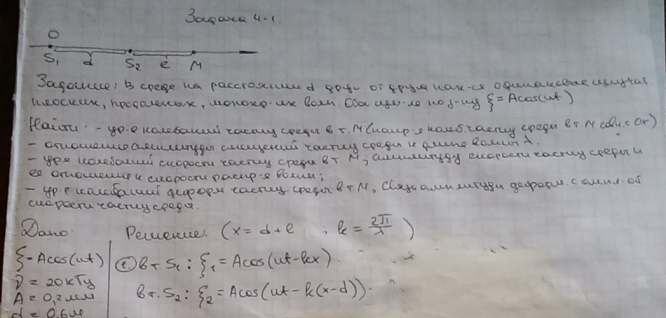 Задача 4-1.
O
S₁ d S₂ l M
Задание: В среде на расстоянии d друг от друга нах-ся одинаковые
плоских, монохр-их волн. Оба по з-ну ξ = Acos(ωt)
Найти: - ур-е колебаний частиц среды в т. M (напр-я колеб. частиц среды в т. M совп. с Or)
- отношение амплитуды смещений частиц среды к длине волны λ.
- ур-я колебаний скорости частиц среды в т. M, амплитуду скорости частиц среды и
её отношения к скорости распр-я волны;
- ур-е колебаний деформ частиц среды в т M, связь амплитуды деформ. с ампл-ой
скорости частиц среды.
Дано: Решение: (x = d + l ; k = 2π/λ)
ξ = Acos(ωt) ① в т. S₁: ξ₁ = Acos(ωt - kx)
ν = 20 кГц в т. S₂: ξ₂ = Acos(ωt - k(x-d))
A = 0,2 мм
d = 0,6 м